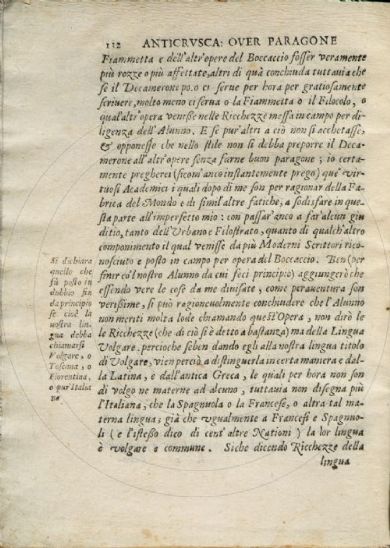 112 ANTICRVSCA: OVER PARAGONE
Fiammetta e dell'altr'opere del Boccaccio fosser veramente
più rozze o più affettate, altri di quà conchiuda tuttauia che
se il Decamerone po.o ci serue per hora per gratiosamente
scriuere, molto meno ci serua o la Fiammetta o il Filocolo, o
qual'altr'opera venisse nelle Ricchezze messa in campo per di-
ligenza dell'Alunno. E se pur'altri a ciò non s'acchetasse,
& opponesse che nello stile non si debba preporre il Deca-
merone all'altr'opere senza farne buon paragone; io certa-
mente pregherei (sicom'anco instantemente prego) que' vir-
tuosi Academici i quali dopo di me son per ragionar della Fa-
brica del Mondo e di simil'altre fatiche, a sodisfare in que-
sta parte all'imperfetto mio: con passar'anco a far'alcun giu
ditio, tanto dell'Vrbano e Filostrato, quanto di qualch'altro
componimento il qual venisse da più Moderni Scrittori rico-
nosciuto e posto in campo per opera del Boccaccio. Ben (per
finir co'l nostro Alunno da cui feci principio) aggiungerò che
essendo vere le cose da me diuisate, come perauentura son
verissime, si può ragioneuolmente conchiudere che l'Alunno
non meriti molta lode chiamando quest'Opera, non dirò le
le Ricchezze (che di ciò si è detto a bastanza) ma della Lingua
Volgare, percioche seben dando egli alla nostra lingua titolo
di Volgare, vien perciò a distinguerla in certa maniera e dal-
la Latina, e dall'antica Greca, le quali per hora non son
di volgo ne materne ad alcuno, tuttauia non disegna più
l'Italiana, che la Spagnuola o la Francese, o altra tal ma-
terna lingua; già che vgualmente a Francesi e Spagnuo-
li (e l'istesso dico di cent'altre Nationi) la lor lingua
è volgare e commune. Siche dicendo Ricchezze della
lingua
Si dichiara
quello che
fù posto in
dubbio fin
da principio
se cioè la
nostra lin
gua debba
chiamarsi
Volgare, o
Toscana, o
Fiorentina,
o pur'Italia
na